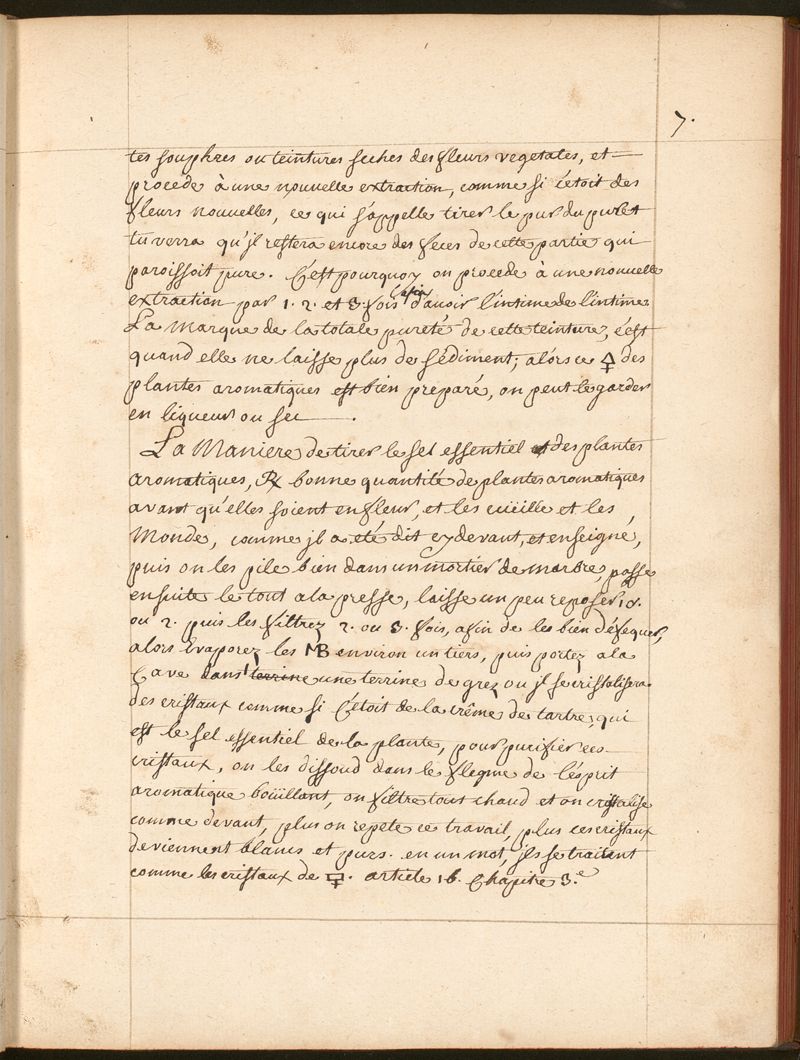 7.
tes souphres ou teintures seches des fleurs vegetales, et
procede à une nouvelle extraction, comme si c'etoit des
fleurs nouvelles, ce qui s'appelle tirer le pur du pur et
tu verra qu'jl restera encore des feces de cette partie qui
paroissoit pure. C'est pourquoy on procede à une nouvelle
extraction par 1. 2. et 3. fois afin d'avoir l'intime de l'intime
La marque de la totale pureté de cette teinture, c'est
quand elle ne laisse plus de sédiment, alors ce 🜍 des
plantes aromatiques est bien preparé, on peut le garder
en liqueur ou sec.
La Maniere de tirer le sel essentiel des plantes
aromatiques, ℞ bonne quantité de plantes aromatiques
avant qu'elles soient en fleur, et les cüeille et les
Monde, comme jl a eté dit cy devant, et enseigné,
puis on les pile bien dans un mortier de marbre, passe
ensuite le tout a la presse, laisse un peu reposer
ou 2. puis les filtrez 2. ou 3. fois, afin de les bien défequer,
alors Evaporez les MB environ un tiers, puis portez a la
Cave dans terrine une terrine de grez ou jl se cristalisera
des cristaux comme si c'étoit de la crême de tartre, qui
est le sel essentiel de la plante, pour purifier ces
cristaux, on les dissoud dans le flegme de l'esprit
aromatique boüillant, on filtre tout chaud et on cristalise
comme devant, plus on repete ce travail, plus ces cristaux
deviennent blancs et purs. en un mot, jls se traitent
comme les cristaux de 🜿. article 16. Chapitre 3.e